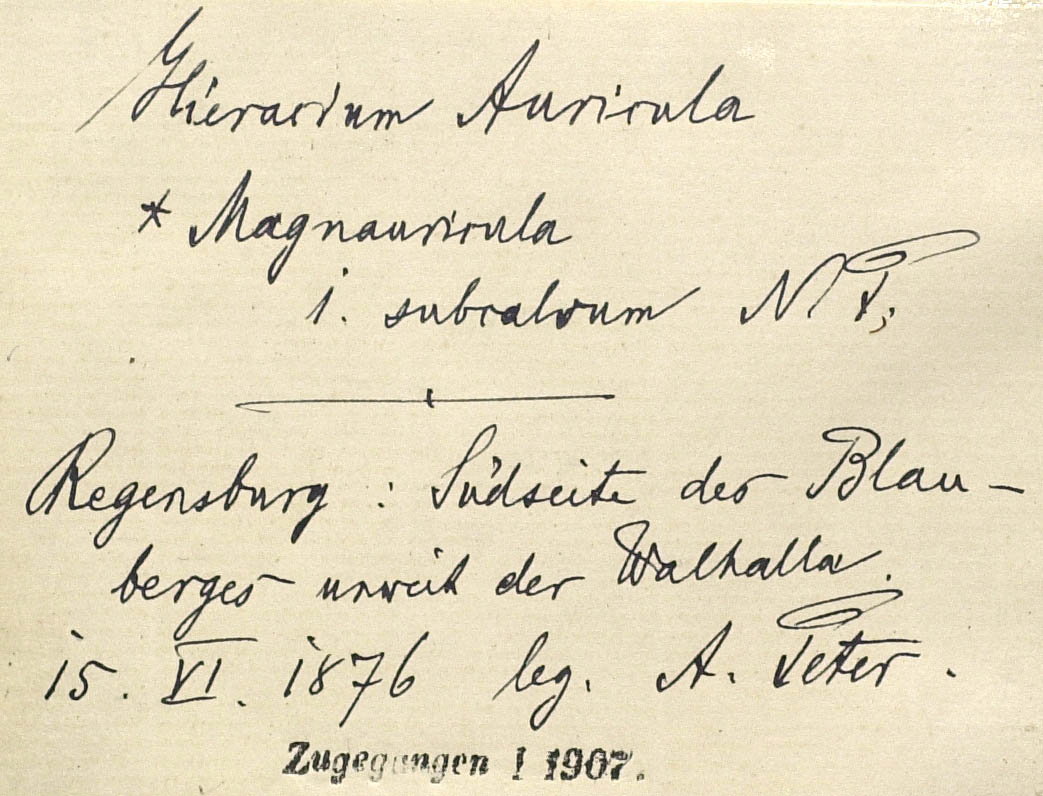 Hieracium Auricula
* Magnauricula
1. subcalvum NP.
Regensburg : Südseite des Blau-
berges unweit der Walhalla.
15. VI. 1876 leg. A. Peter.
Zugegangen 1 1907.